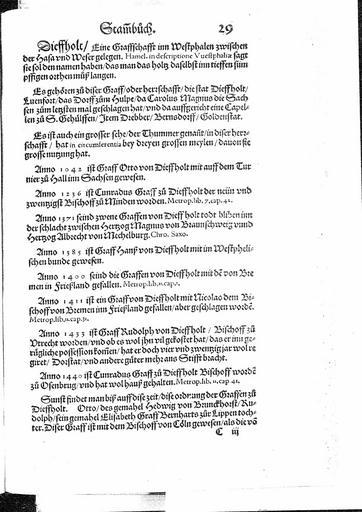 Stambůch. 29
Dieffholt/ Eine Graffschafft inn Westphalen zwischen
der Hasa vnd Weser gelegen. Hamel. in descriptione Vuestphaliæ sagt
sie sol den namen haben/ das man das holz daselbst inn tieffen süm
pffigen orthen müß langen.
Es gehören zů diser Graff/oder herrschafft/ die stat Dieffholt/
Luenfort/ das Dorff zům Hulpe/ da Carolus Magnus die Sach
sen zům letsten mal geschlagen hat/ vnd da auffgericht eine Capel
len zů S. Gehülffen/ Item Drebber/ Bernsdorff/ Goldenstat.
Es ist auch ein grosser sehe/ der Thummer genant/ in diser herr
schafft/ hat in circumferentia bey dreyen grossen meylen/ dauon sie
grosse nutzung hat.
Anno 1042 ist Graff Otto von Dieffholt mit auff dem Tur
nier zů Hall inn Sachsen gewesen.
Anno 1236 ist Cunradus Graff zů Dieffholt der neün vnd
zwentzigst Bischoff zů Minden worden. Metrop. lib. 7. cap. 41.
Anno 1371 seind zwene Graffen von Dieffholt todt bliben inn
der schlacht zwischen Hertzog Magnus von Braunschweig vnnd
Hertzog Albrecht von Mechelburg. Chro. Saxo.
Anno 1385 ist Graff Hanß von Dieffholt mit im Westpheli-
schen bunde gewesen.
Anno 1400 seind die Graffen von Dieffholt mit dē von Bre
men in Frießland gefallen. Metrop. lib. 11. cap.
Anno 1411 ist ein Graff von Dieffholt mit Nicolao dem Bi-
schoff von Bremen inn Frießland gefallen/ aber geschlagen wordē.
Metrop. lib. 11. cap.
Anno 1433 ist Graff Rudolph von Dieffholt/ Bischoff zů
Vtrecht worden/ vnd ob es wol ihn vil gekostet hat/ das er inn ge-
rüglich possession komēn/ hat er doch vier vnd zwentzig jar wol re
giret/ Dorstat/ vnd andere güter mehr ans Stifft bracht.
Anno 1440 ist Cunradus Graff zů Dieffholt Bischoff wordē
zů Osenbrug/ vnd hat wol hauß gehalten. Metrop. lib. 11. cap. 41.
Sunst findet man biß auff dise zeit/ dise ordnung der Graffen zů
Dieffholt. Otto/ des gemahel Hedwig von Brunckhorst/ Ru-
dolph/ sein gemahel Elisabeth Graff Bernharts zůr Lippen toch-
ter. Diser Graff ist mit dem Bischoff von Cöln gewesen/ als die vō
C iij